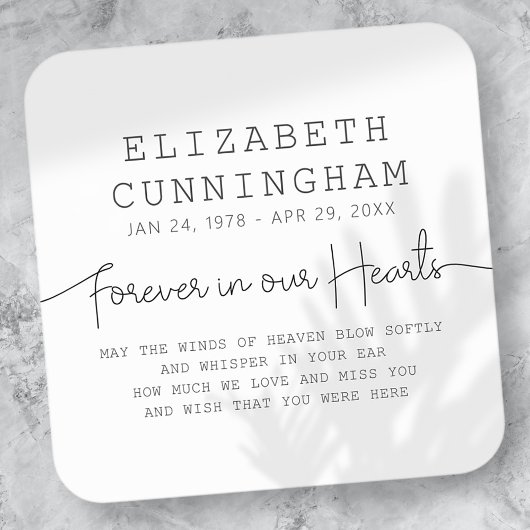 ELIZABETH
CUNNINGHAM
JAN 24, 1978 - APR 29, 20XX
Forever in our Hearts
MAY THE WINDS OF HEAVEN BLOW SOFTLY
AND WHISPER IN YOUR EAR
HOW MUCH WE LOVE AND MISS YOU
AND WISH THAT YOU WERE HERE